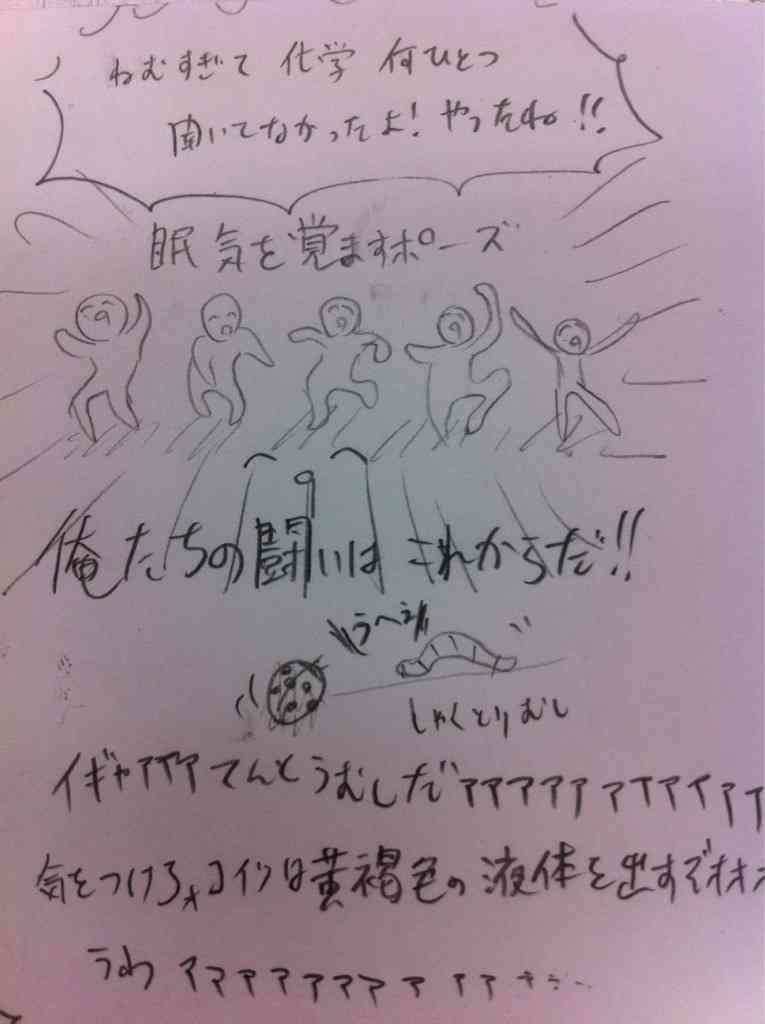 ねむすぎて 化学 何ひとつ
聞いてなかったよ! やったね!!
眠気を覚ますポーズ
俺たちの闘いは これからだ!!
うへえ
しゃくとりむし
イギャアアアてんとうむしだァァアアアアアアアアア
気をつけろォコイツは黄褐色の液体を出すぞオオオ
うわァアアアアアアアアア